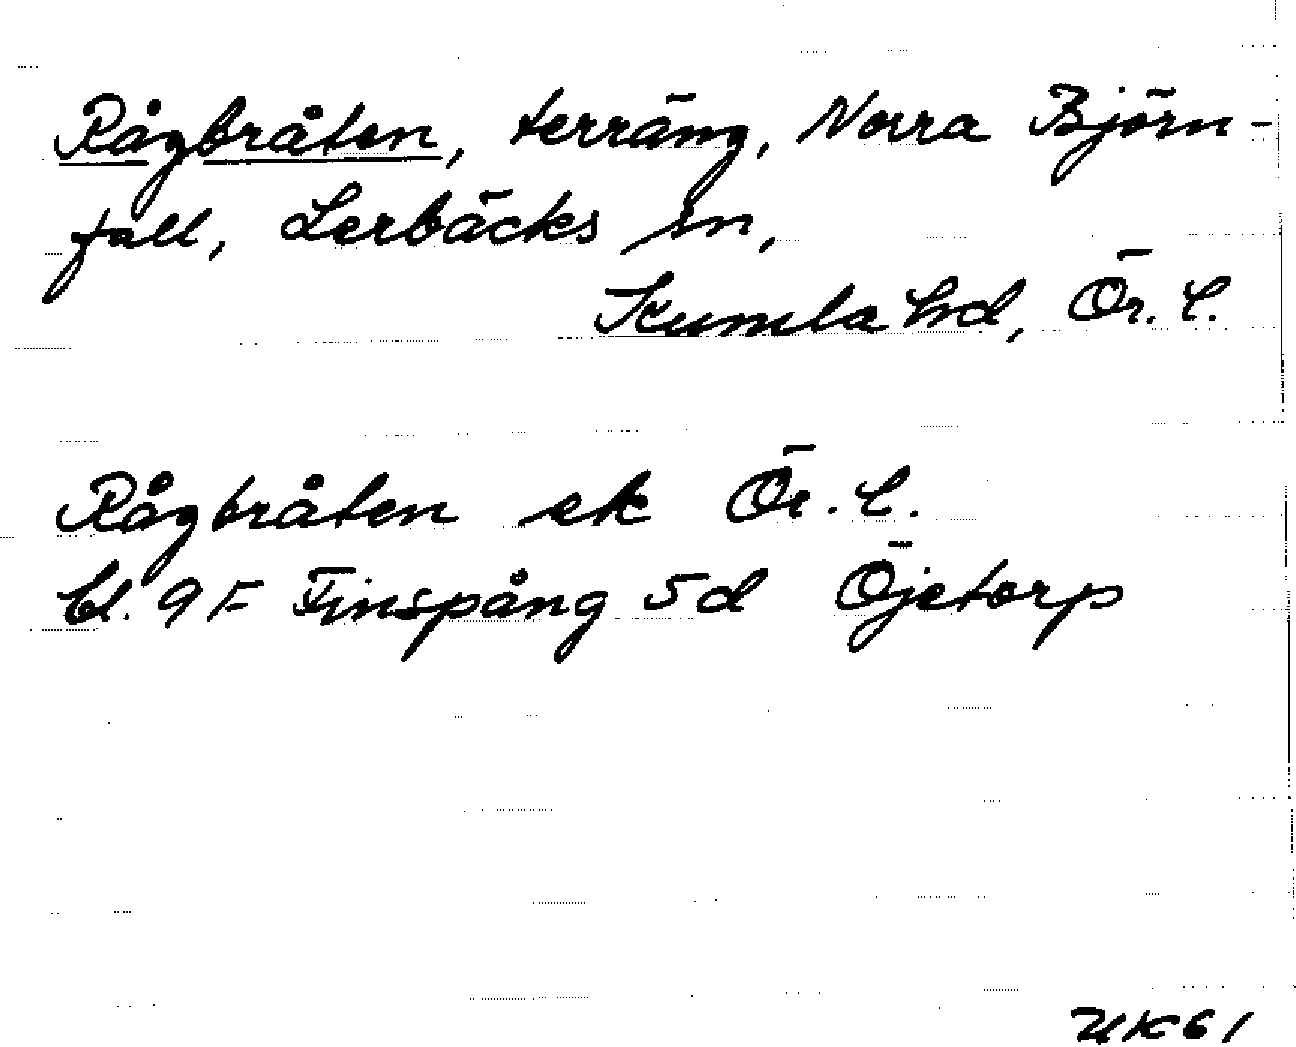 Rågbråten, terräng, Norra Björn-
fall, Lerbäcks sn,
Kumla hd, Ör. l.
Rågbråten ek Ör. l.
bl. 9F Finspång 5d Öjetorp
UK61